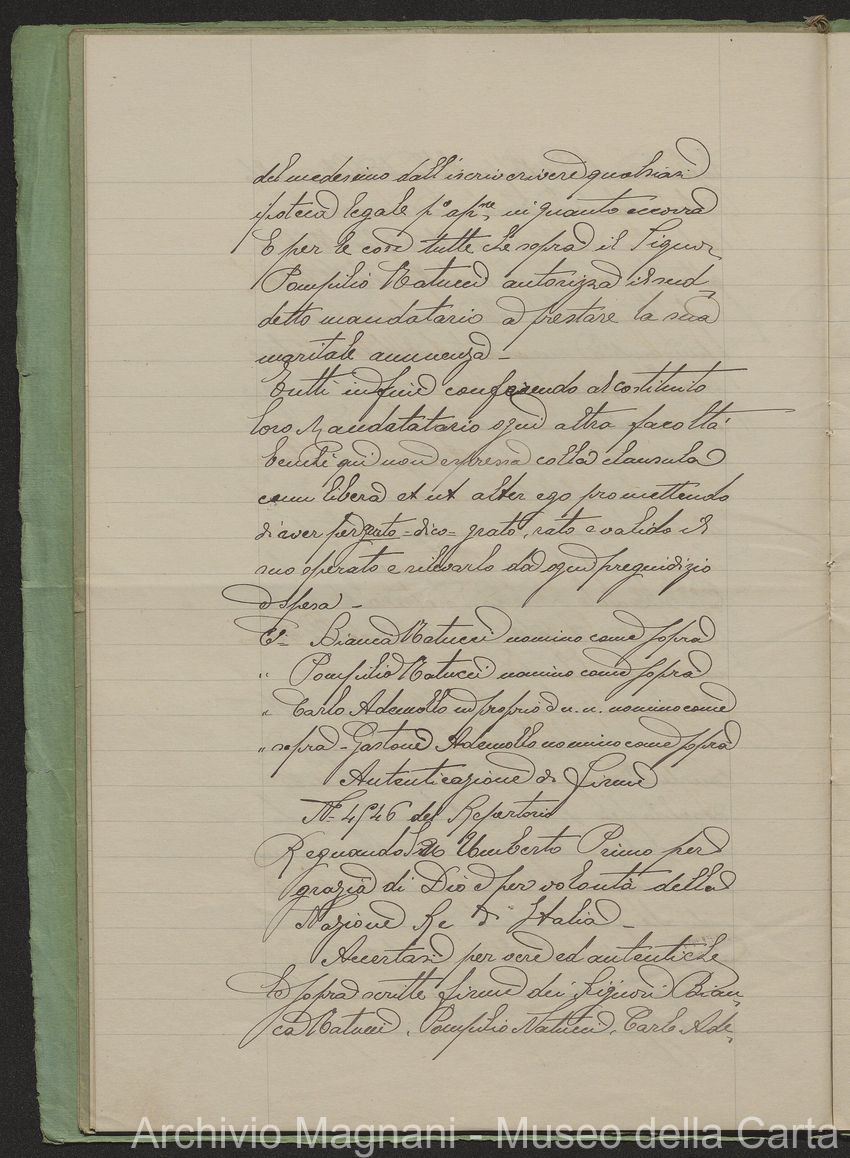 del medesimo dall'iscriverere qualsiasi
ipoteca legale p.º ap.ne, in quanto occorra
E per le cose tutte che sopra il Signor
Pompilio Natucci autorizza il sud-
detto mandatario a prestare la sua
maritale annuenza -
Tutti infine conferendo al costituito
loro Mandatatario ogni altra facoltà
benchè quì non espressa colla clausula
cum libera et ut alter ego promettendo
di aver per rato - dico - grato, rato e valido il
suo operato e rilevarlo da ogni pregiudizio
e spesa -
F.° Bianca Natucci nomino come sopra
" Pompilio Natucci nomino come sopra
" Carlo Ademollo in proprio e n. n. nomino come
" sopra - Gastone Ademollo nomino come sopra
Autenticazione di Firme
N.° 4546 del Repertorio
Regnando S.M. Umberto Primo per
grazia di Dio e per volontà della
Nazione Re d'Italia -
Accertasi per vere ed autentiche
le sopra scritte firme dei Signori Bian-
ca Natucci, Pompilio Natucci, Carlo Ade-
Archivio Magnani - Museo della Carta